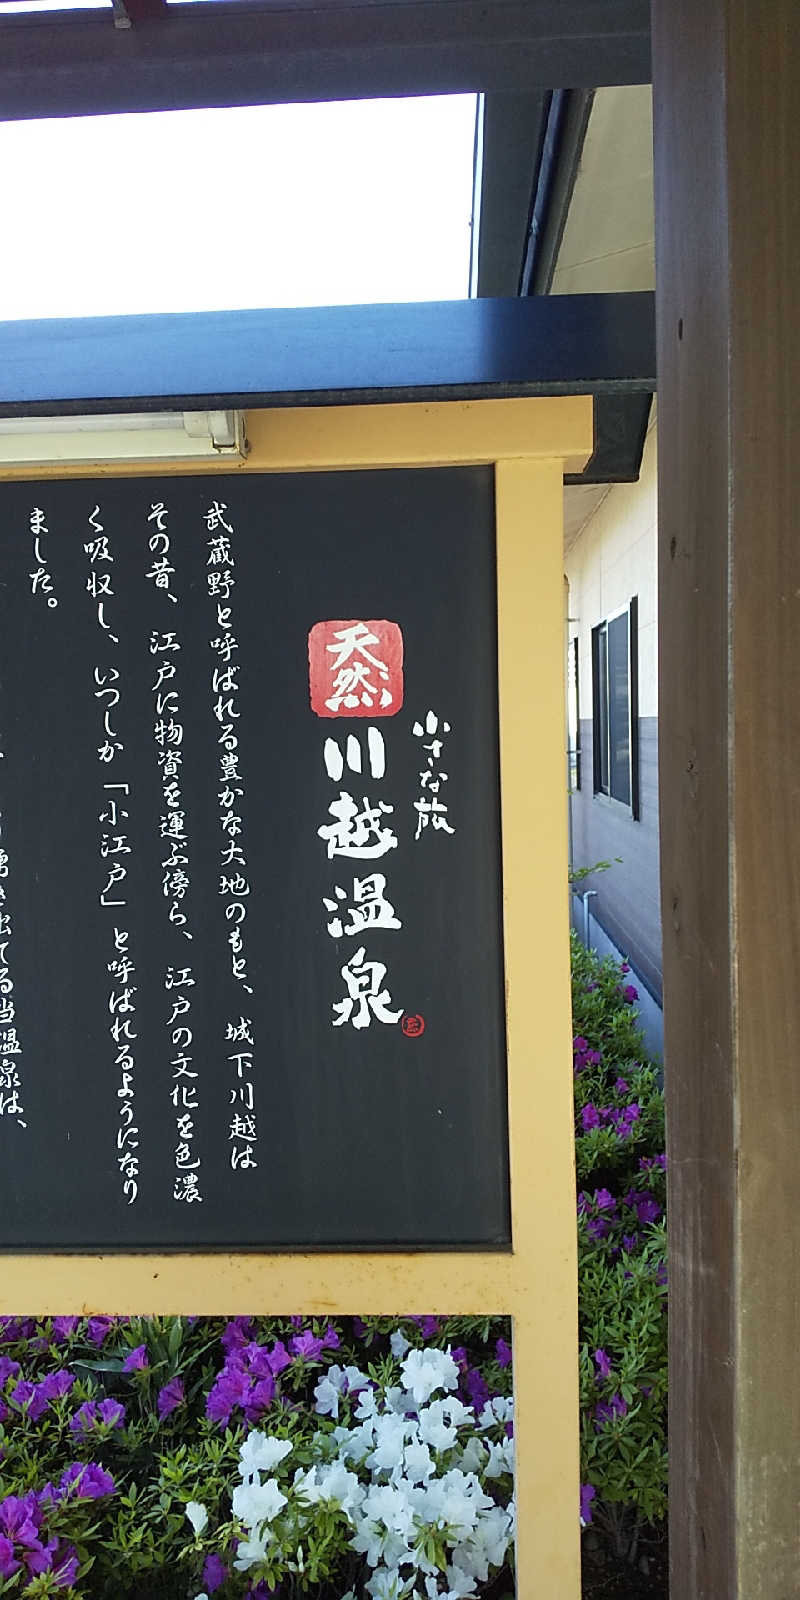 小さな旅
天然
川越温泉
武蔵野と呼ばれる豊かな大地のもと、城下川越は
その昔、江戸に物資を運ぶ傍ら、江戸の文化を色濃
く吸収し、いつしか「小江戸」と呼ばれるようになり
ました。
湧き出てる当温泉は、